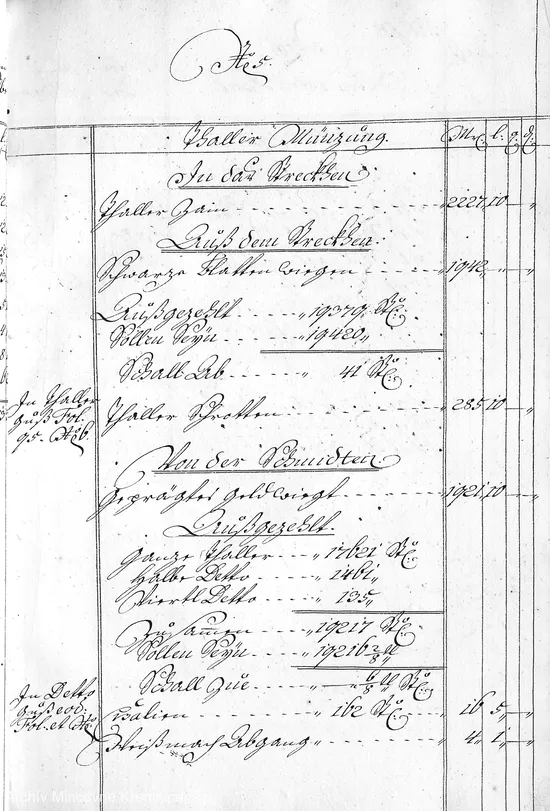 No 5.
Thaller Münzung. Mr. l. q. d.
In das Streckhen
Thaller Zain 2227 10
Auß dem Streckhen.
Schwarze Blatten wiegen 1942
Außgezehlt 19379 Stk
Sollen Seyn 19420
Schall Ab 41 Stk
In Thaller
Guß Fol.
95. No 6.
Thaller Schrotten 285 10
Von der Schmidten
Geprägtes Geld wiegt 1921 10
Außgezehlt.
Ganze Thaller 17621 Stk
Halbe Detto 1461
Viertl Detto 135
Zusammen 19217 Stk
Sollen Seyn 19216 2/8
Schall Zue 6/8 Stk
In Detto
Guß eod:
Fol. et No
162 Stk 16 5
Weißmach Abgang 4 1